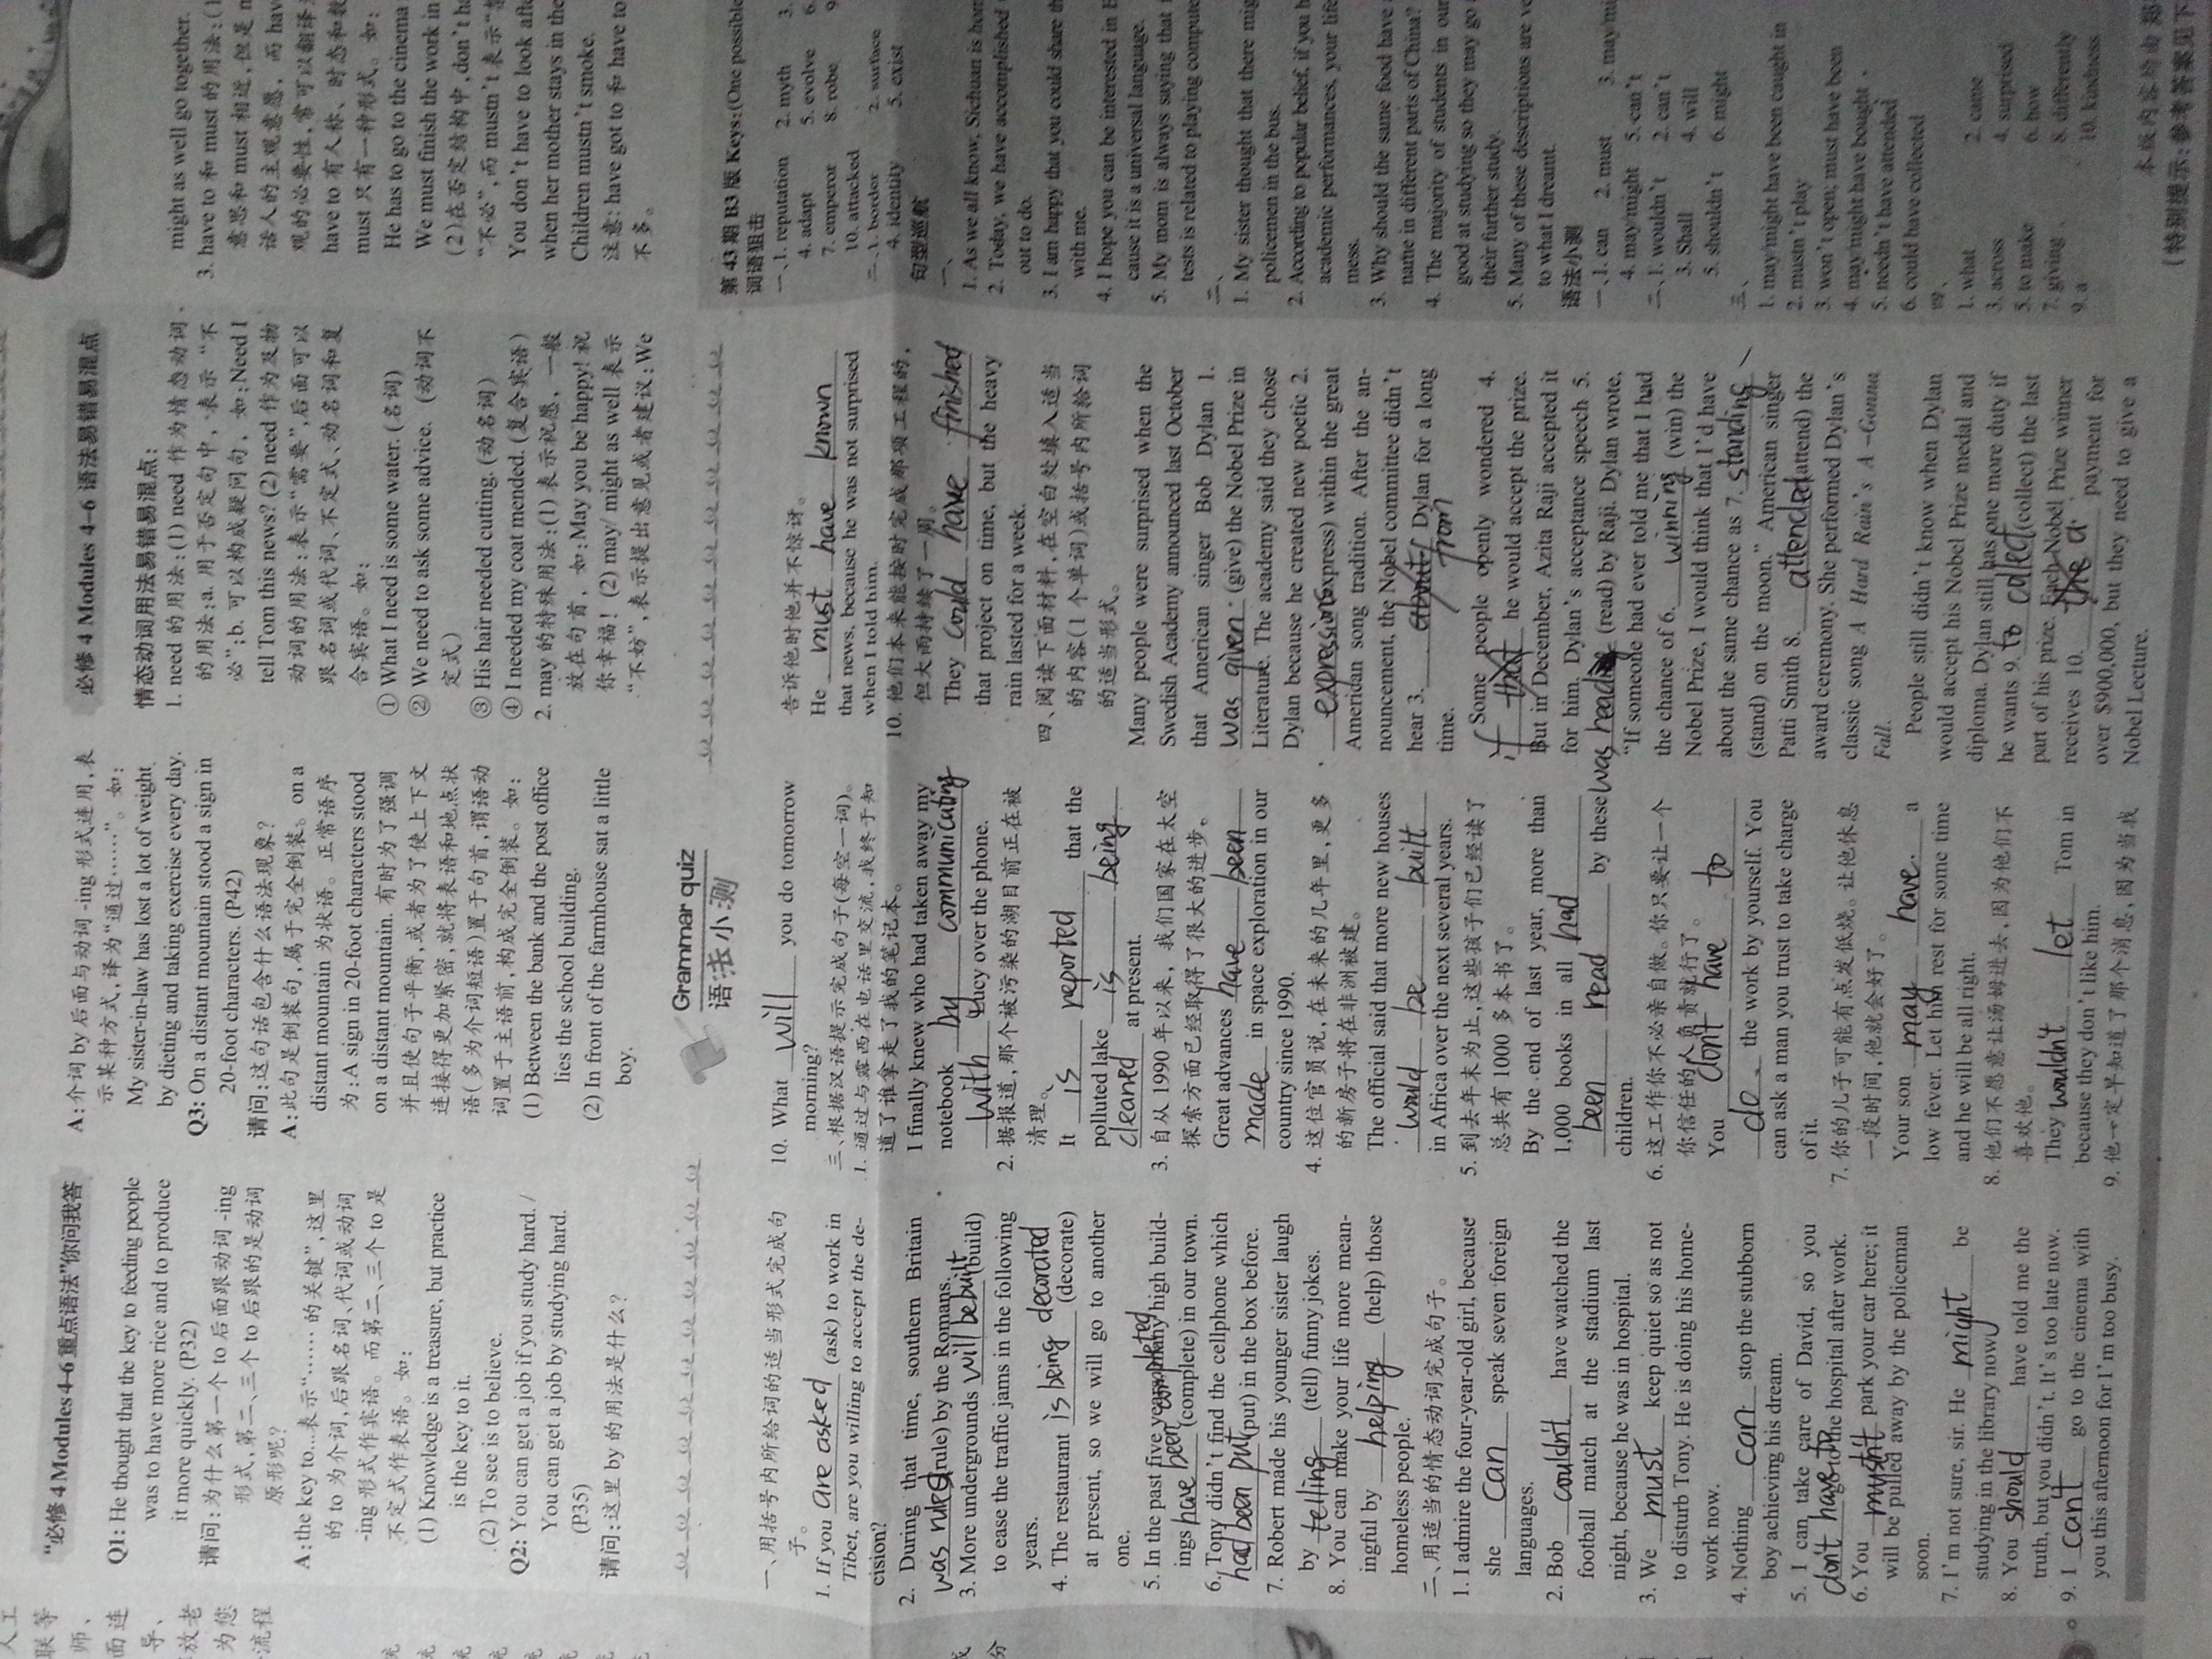 人工
联等
师、
面连
导、
放老
为您
流程
"必修 4 Modules 4-6 重点语法"你问我答
Q1: He thought that the key to feeding people
was to have more rice and to produce
it more quickly. (P32)
请问:为什么第一个 to 后面跟动词 -ing
形式,第二、三个 to 后跟的是动词
原形呢?
A: the key to...表示"……的关键",这里
的 to 为介词,后跟名词、代词或动词
-ing 形式作宾语。而第二、三个 to 是
不定式作表语。如:
(1) Knowledge is a treasure, but practice
is the key to it.
(2) To see is to believe.
Q2: You can get a job if you study hard. /
You can get a job by studying hard.
(P35)
请问:这里 by 的用法是什么?
A:介词 by 后面与动词 -ing 形式连用,表
示某种方式,译为"通过……"。如:
My sister-in-law has lost a lot of weight
by dieting and taking exercise every day.
Q3: On a distant mountain stood a sign in
20-foot characters. (P42)
请问:这句话包含什么语法现象?
A:此句是倒装句,属于完全倒装。on a
distant mountain 为状语。正常语序
为:A sign in 20-foot characters stood
on a distant mountain. 有时为了强调
并且使句子平衡,或者为了使上下文
连接得更加紧密,就将表语和地点状
语(多为介词短语)置于句首,谓语动
词置于主语前,构成完全倒装。如:
(1) Between the bank and the post office
lies the school building.
(2) In front of the farmhouse sat a little
boy.
必修 4 Modules 4-6 语法易错易混点
情态动词用法易错易混点:
1. need 的用法:(1) need 作为情态动词
的用法:a. 用于否定句中,表示"不
必";b. 可以构成疑问句,如:Need I
tell Tom this news? (2) need 作为及物
动词的用法:表示"需要",后面可以
跟名词或代词、不定式、动名词和复
合宾语。如:
① What I need is some water. (名词)
② We need to ask some advice. (动词不
定式)
③ His hair needed cutting. (动名词)
④ I needed my coat mended. (复合宾语)
2. may 的特殊用法:(1) 表示祝愿,一般
放在句首,如:May you be happy! 祝
你幸福! (2) may/ might as well 表示
"不妨",表示提出意见或者建议:We
might as well go together.
3. have to 和 must 的用法:(1
意思和 must 相近,但是 m
话人的主观意愿,而 hav
观的必要性,常可以翻译
have to 有人称、时态和数
must 只有一种形式。如:
He has to go to the cinema
We must finish the work in
(2)在否定结构中,don't ha
"不必",而 mustn't 表示"禁
You don't have to look afte
when her mother stays in the
Children mustn't smoke.
注意: have got to 和 have to
不多。
Grammar quiz
语法小测
一、用括号内所给词的适当形式完成句
子。
1. If you are asked (ask) to work in
Tibet, are you willing to accept the de-
cision?
2. During that time, southern Britain
was ruled (rule) by the Romans.
3. More undergrounds will be built (build)
to ease the traffic jams in the following
years.
4. The restaurant is being decorated (decorate)
at present, so we will go to another
one.
5. In the past five years, many high build-
ings have been completed (complete) in our town.
6. Tony didn't find the cellphone which
had been put (put) in the box before.
7. Robert made his younger sister laugh
by telling (tell) funny jokes.
8. You can make your life more mean-
ingful by helping (help) those
homeless people.
二、用适当的情态动词完成句子。
1. I admire the four-year-old girl, because
she can speak seven foreign
languages.
2. Bob couldn't have watched the
football match at the stadium last
night, because he was in hospital.
3. We must keep quiet so as not
to disturb Tony. He is doing his home-
work now.
4. Nothing can stop the stubborn
boy achieving his dream.
5. I can take care of David, so you
don't have to go to the hospital after work.
6. You mustn't park your car here; it
will be pulled away by the policeman
soon.
7. I'm not sure, sir. He might be
studying in the library now.
8. You should have told me the
truth, but you didn't. It's too late now.
9. I can't go to the cinema with
you this afternoon for I'm too busy.
10. What will you do tomorrow
morning?
三、根据汉语提示完成句子(每空一词)。
1. 通过与露西在电话里交流,我终于知
道了谁拿走了我的笔记本。
I finally knew who had taken away my
notebook by communicating
with Lucy over the phone.
2. 据报道,那个被污染的湖目前正在被
清理。
It is reported that the
polluted lake is being
cleaned at present.
3. 自从 1990 年以来,我们国家在太空
探索方面已经取得了很大的进步。
Great advances have been
made in space exploration in our
country since 1990.
4. 这位官员说,在未来的几年里,更多
的新房子将在非洲被建。
The official said that more new houses
would be built
in Africa over the next several years.
5. 到去年末为止,这些孩子们已经读了
总共有 1000 多本书了。
By the end of last year, more than
1,000 books in all had
been read by these
children.
6. 这工作你不必亲自做。你只要让一个
你信任的人负责就行了。
You don't have to
do the work by yourself. You
can ask a man you trust to take charge
of it.
7. 你的儿子可能有点发低烧。让他休息
一段时间,他就会好了。
Your son may have a
low fever. Let him rest for some time
and he will be all right.
8. 他们不愿意让汤姆进去,因为他们不
喜欢他。
They wouldn't let Tom in
because they don't like him.
9. 他一定早知道了那个消息,因为当我
告诉他时他并不惊讶。
He must have known
that news, because he was not surprised
when I told him.
10. 他们本来能按时完成那项工程的,
但大雨持续了一周。
They could have finished
that project on time, but the heavy
rain lasted for a week.
四、阅读下面材料,在空白处填入适当
的内容(1 个单词)或括号内所给词
的适当形式。
Many people were surprised when the
Swedish Academy announced last October
that American singer Bob Dylan 1.
was given (give) the Nobel Prize in
Literature. The academy said they chose
Dylan because he created new poetic 2.
expressions (express) within the great
American song tradition. After the an-
nouncement, the Nobel committee didn't
hear 3. about from Dylan for a long
time.
Some people openly wondered 4.
if that he would accept the prize.
But in December, Azita Raji accepted it
for him. Dylan's acceptance speech 5.
was read (read) by Raji. Dylan wrote,
"If someone had ever told me that I had
the chance of 6. winning (win) the
Nobel Prize, I would think that I'd have
about the same chance as 7. standing
(stand) on the moon." American singer
Patti Smith 8. attended (attend) the
award ceremony. She performed Dylan's
classic song A Hard Rain's A-Gonna
Fall.
People still didn't know when Dylan
would accept his Nobel Prize medal and
diploma. Dylan still has one more duty if
he wants 9. to collect (collect) the last
part of his prize. Each Nobel Prize winner
receives 10. the a payment for
over $900,000, but they need to give a
Nobel Lecture.
第 43 期 B3 版 Keys:(One possible
词语狙击
一、1. reputation 2. myth 3.
4. adapt 5. evolve 6.
7. emperor 8. robe 9
10. attacked
二、1. border 2. surface
4. identity 5. exist
句型巡航
一、
1. As we all know, Sichuan is hom
2. Today, we have accomplished
out to do.
3. I am happy that you could share th
with me.
4. I hope you can be interested in E
cause it is a universal language.
5. My mom is always saying that
tests is related to playing compute
二、
1. My sister thought that there mig
policemen in the bus.
2. According to popular belief, if you h
academic performances, your life
mess.
3. Why should the same food have
name in different parts of China?
4. The majority of students in our
good at studying so they may go
their further study.
5. Many of these descriptions are ve
to what I dreamt.
语法小测
一、1. can 2. must 3. may/mi
4. may/might 5. can't
二、1. wouldn't 2. can't
3. Shall 4. will
5. shouldn't 6. might
三、
1. may/might have been caught in
2. mustn't play
3. won't open; must have been
4. may/might have bought
5. needn't have attended
6. could have collected
四、
1. what 2. came
3. across 4. surprised
5. to make 6. how
7. giving 8. differently
9. a 10. kindness
本版内容均由 郑
(特别提示:参考答案见下